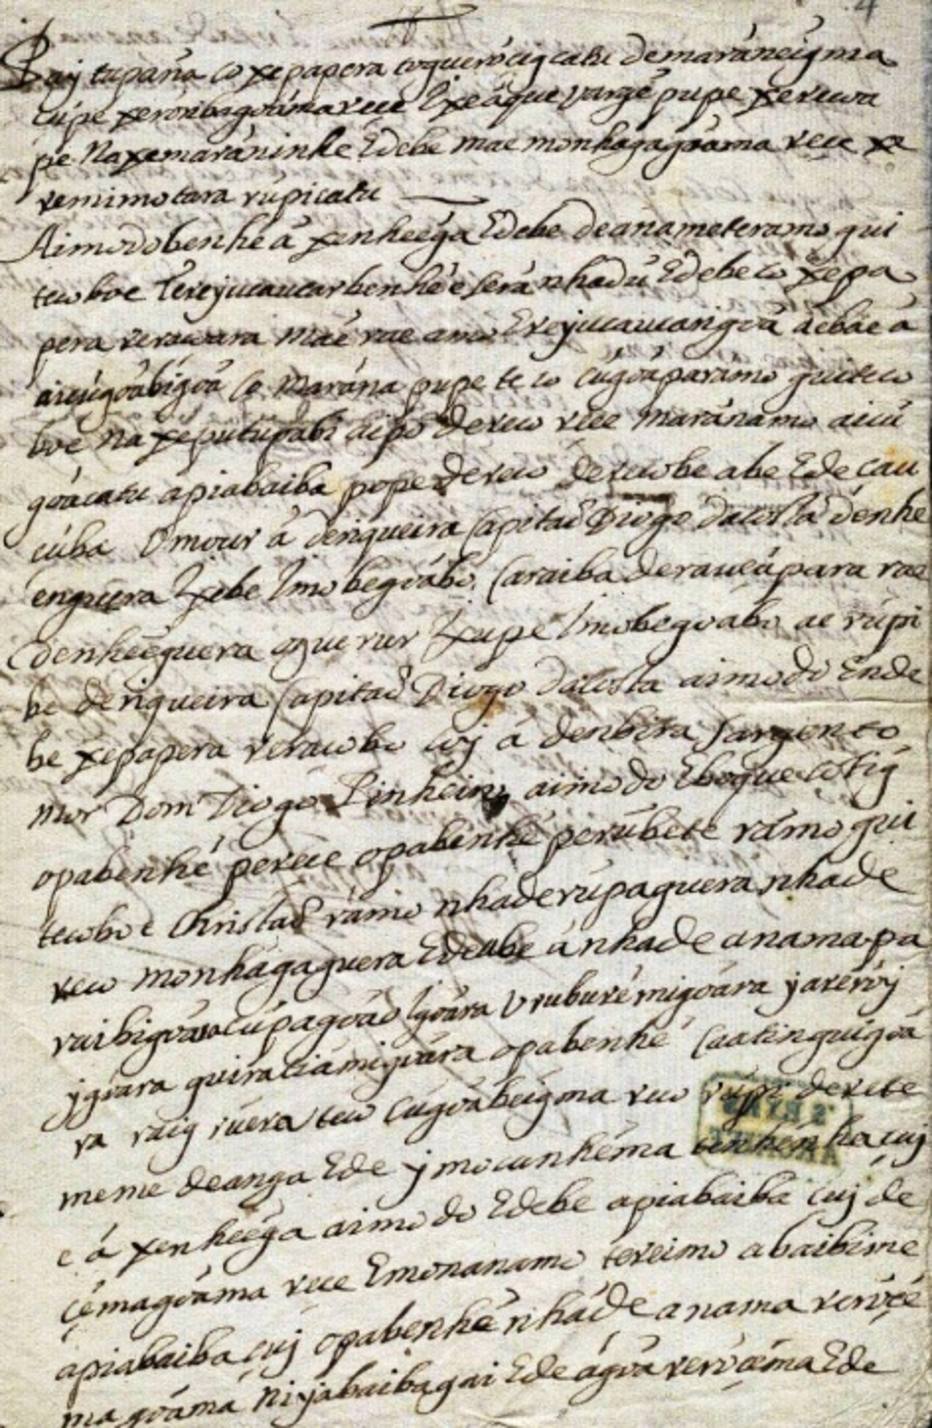 4
Paj tupana co xepapera toguerocig catu demaraneigma
cupe xeroribagoama rece Ixe aque vargē pupe xerecoa
pe Naxemaraninhe Edebe mae monhagagoama rece xe
remimotara rupicatu
Aimodobenhe ā xenheēga Edebe deanameteramo gui
tecoboe Terejucaucarbenhē e sera nhadū Edebe co xepa
pera reracoara mae rae amo Erejucaucarigoā aebae ā
aicugoabigoā co marana pupe te co cugoaparamo guiteco
boe na xeputupabi aipo dereco rece maranamo aicu
goacatu apiabaiba pope dereco derecobe abe Ede cau
cuba Omour ā deriqueira Capitaõ Diogo dacosta denhe
enguera Ixebe Imobegoabo Caraiba deraueapara rae
denheēguera ogue rur Ixupe Imobegoabo ae rupi
be deriqueira Capitaõ Diogo Dacosta aimodo Ende
be xepapera reracobo coj ā denbira Sargento
mor Dom Diogo Pinheiro aimodo Eboque cotig
opabenhé perece opabenhé perubete ramo gui
tecoboe Christaõ ramo nhaderupaguera nhade
reco monhagaguera Edeabe ā nhade anama pa
raibigoara cupagoaõ Igoara Urubúremigoara jareroj
ygoara guiratiamigoara opabenhé Caatinguigoa
ra raig ruera teco cugoabeigma reco rupi derete
meme deanga Ede ymocanhema tenhenhe cuj
e á xenheēga aimodo Edebe apiabaiba cuj de
cemagoama rece Emonanamo tereimo abaibime
apiabaiba cuj opabenhé nhade anama reroce
magoama Nijabaibagai Ede agoa rerocema Ede